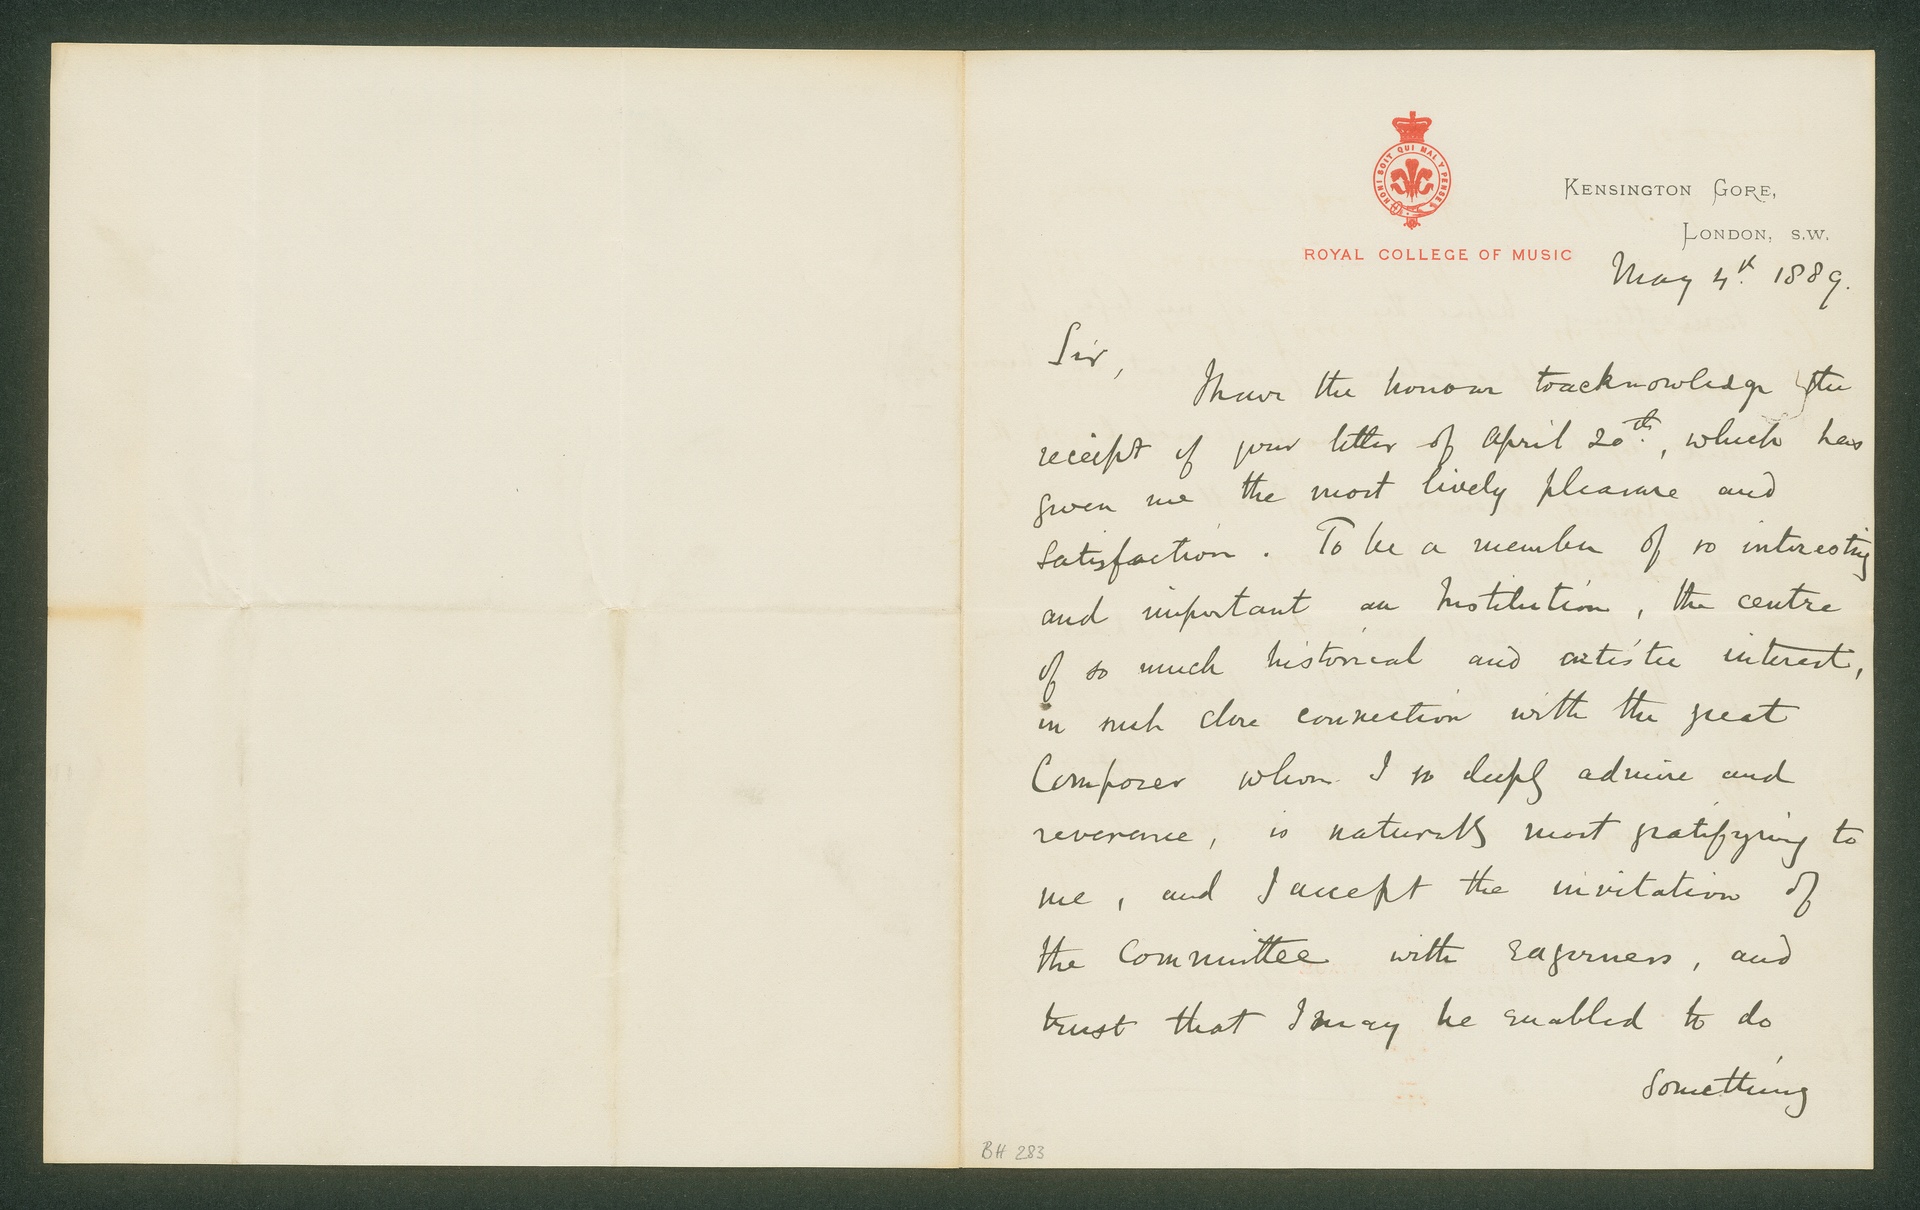 HONI SOIT QUI MAL Y PENSE
ROYAL COLLEGE OF MUSIC
KENSINGTON GORE,
LONDON, S.W.
May 4th. 1889.
Sir,
I have the honour to acknowledge the
receipt of your letter of April 20th., which has
given me the most lively pleasure and
satisfaction. To be a member of so interesting
and important an Institution, the centre
of so much historical and artistic interest,
in such close connection with the great
Composer whom I so deeply admire and
reverence, is naturally most gratifying to
me, and I accept the invitation of
the Committee with eagerness, and
trust that I may be enabled to do
something
BH 283